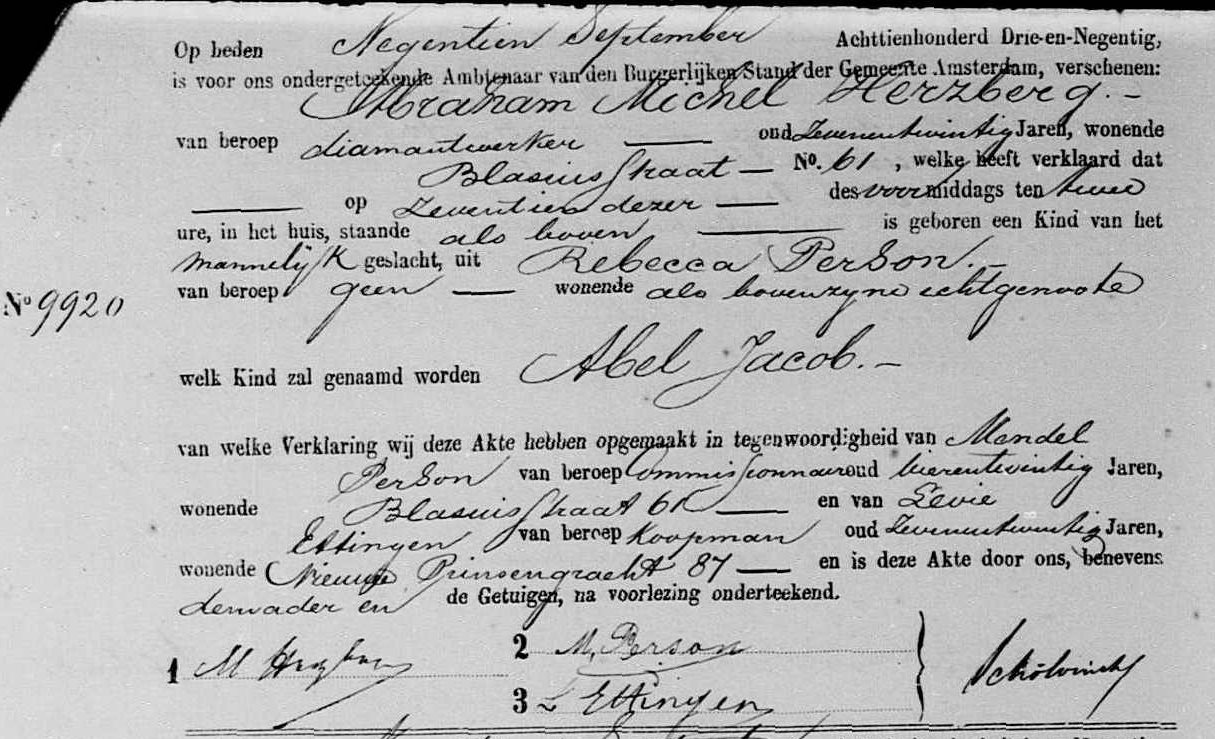 Op heden Negentien September Achttienhonderd Drie-en-Negentig,
is voor ons ondergeteekende Ambtenaar van den Burgerlijken Stand der Gemeente Amsterdam, verschenen:
Abraham Michel Herzberg.-
van beroep diamantwerker — oud Zevenentwintig Jaren, wonende
Blasiusstraat — No. 61, welke heeft verklaard dat
— op Zeventien dezer — des voormiddags ten twee
ure, in het huis, staande als boven, — is geboren een Kind van het
mannelijk geslacht, uit Rebecca Person.-
No 9920 van beroep geen — wonende als boven zyne echtgenoote
welk Kind zal genaamd worden Abel Jacob.-
van welke Verklaring wij deze Akte hebben opgemaakt in tegenwoordigheid van Mendel
Person van beroep Commissionnair oud vierentwintig Jaren,
wonende Blasiusstraat 61 — en van Levie
Ettingen van beroep Koopman oud Zevenentwintig Jaren,
wonende Nieuwe Prinsengracht 87 — en is deze Akte door ons, benevens
den vader en de Getuigen, na voorlezing onderteekend.
1 M Herzberg 2 M, Person
3 L Ettingen